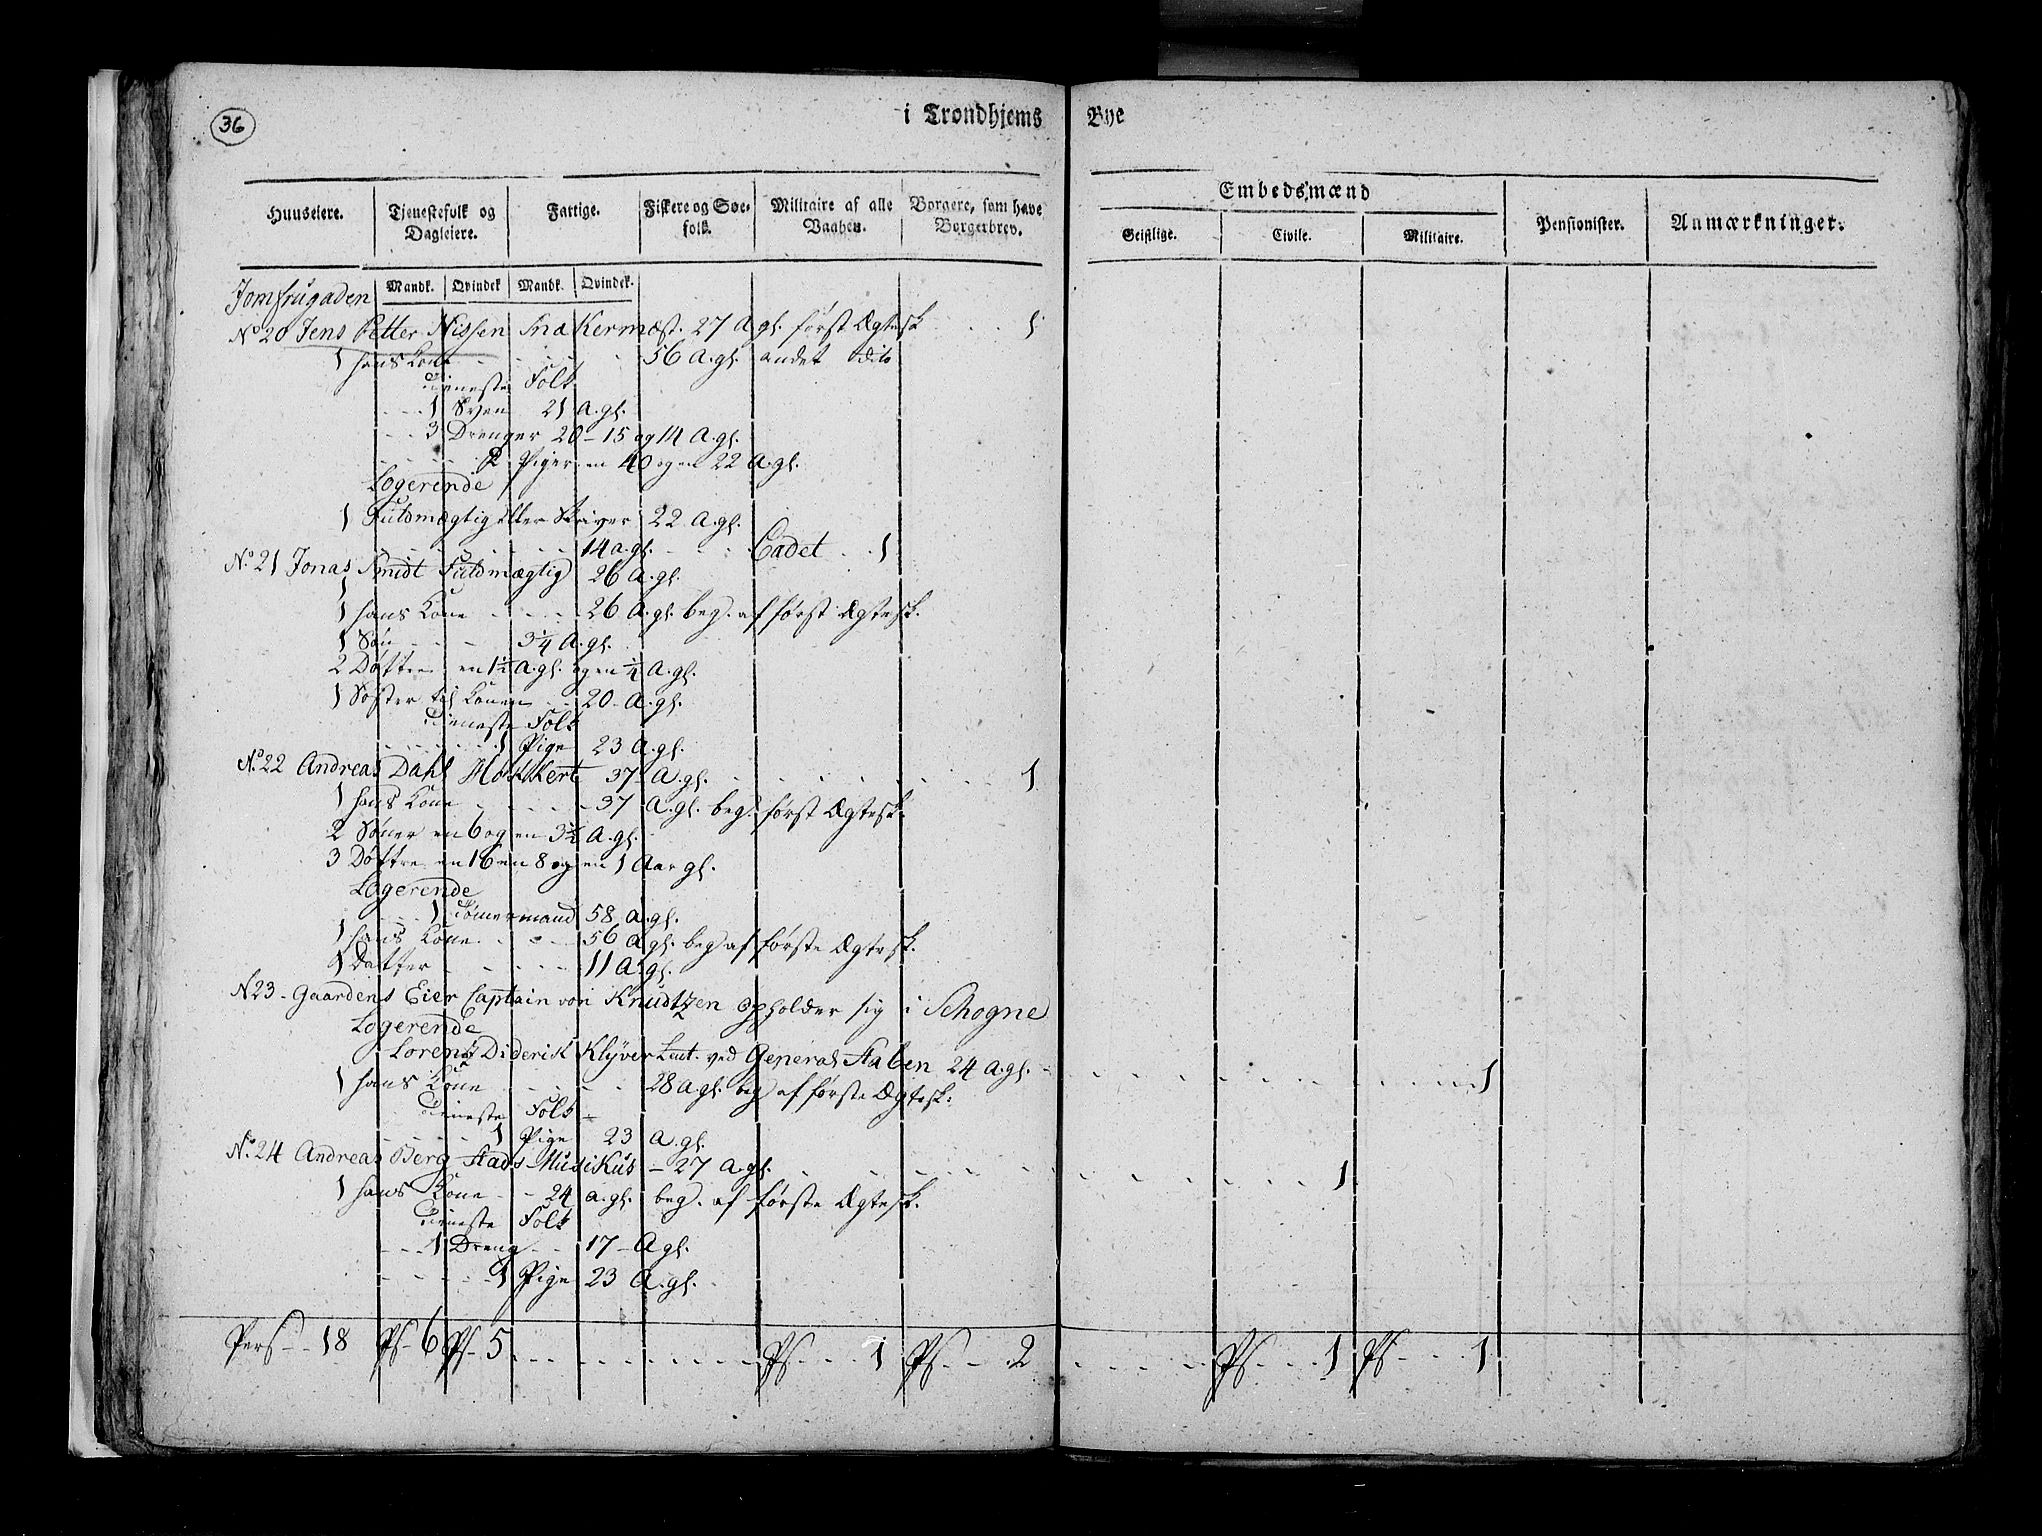 36
i Trondhjems Bye
Huuseiere. Tjenestefolk og Dagleiere. Fattige. Fiskere og Søe-folk. Militaire af alle Vaaben. Borgere, som have Borgerbrev. Embedsmænd Geistlige. Civile. Militaire. Pensionister. Anmærkninger.
Mandk. Qvindek Mandk. Qvindek.
Jomfrugaden
No 20 Jens Petter Nissen Snækermæst. 27 A gl. først Ægtesk 1
1 hans Kone 56 A.gl. andet dito
Tieneste Folk
1 Sven 21 A.gl.
3 Drenger 20 - 15 og 14 A.gl.
2 Piger en 40 og en 22 A.gl.
Logerende
1 Fuldmægtig eller Skriver 22 A.gl.
14 a.gl. Cadet 1
No 21 Jonas Smidt Fuldmægtig 26 A.gl.
1 hans Kone 26 A.gl. beg. af først Ægtesk.
1 Søn 3¼ A.gl.
2 Døttre en 1½ A.gl. og en ¼ A.gl.
1 Søster til Konen 20 A.gl.
Tieneste Folk
1 Pige 23 A.gl.
No 22 Andreas Dahl 37 A.gl. 1
1 hans Kone 37 A.gl. beg. først Ægtesk.
2 Søner en 6 og en 3½ A.gl.
3 Døttre en 16 en 8 og en 1 Aar gl.
Logerende
1 Tømermand 58 A.gl.
1 hans Kone 56 A gl. beg af første Ægtesk.
1 Datter 11 A.gl.
N 23 - Gaardens Eier Captain von Knudtzen opholder sig i Schogne
Logerende
Lorentz Diderik Klÿver Leut. ved General Staben 24 A.gl. 1
1 hans Kone 28 A gl. beg af første Ægtesk.
Tieneste Folk
1 Pige 23 A.gl.
No. 24 Andreas Berg Stads Musikus - 27 A.gl. 1
1 hans Kone 24 a.gl. beg. af første Ægtesk.
Tieneste Folk
1 Dreng 17 - A gl.
1 Pige 23 A.gl.
Pers 18 Ps 6 Ps 5 Ps 1 Ps 2 Ps 1 Ps 1